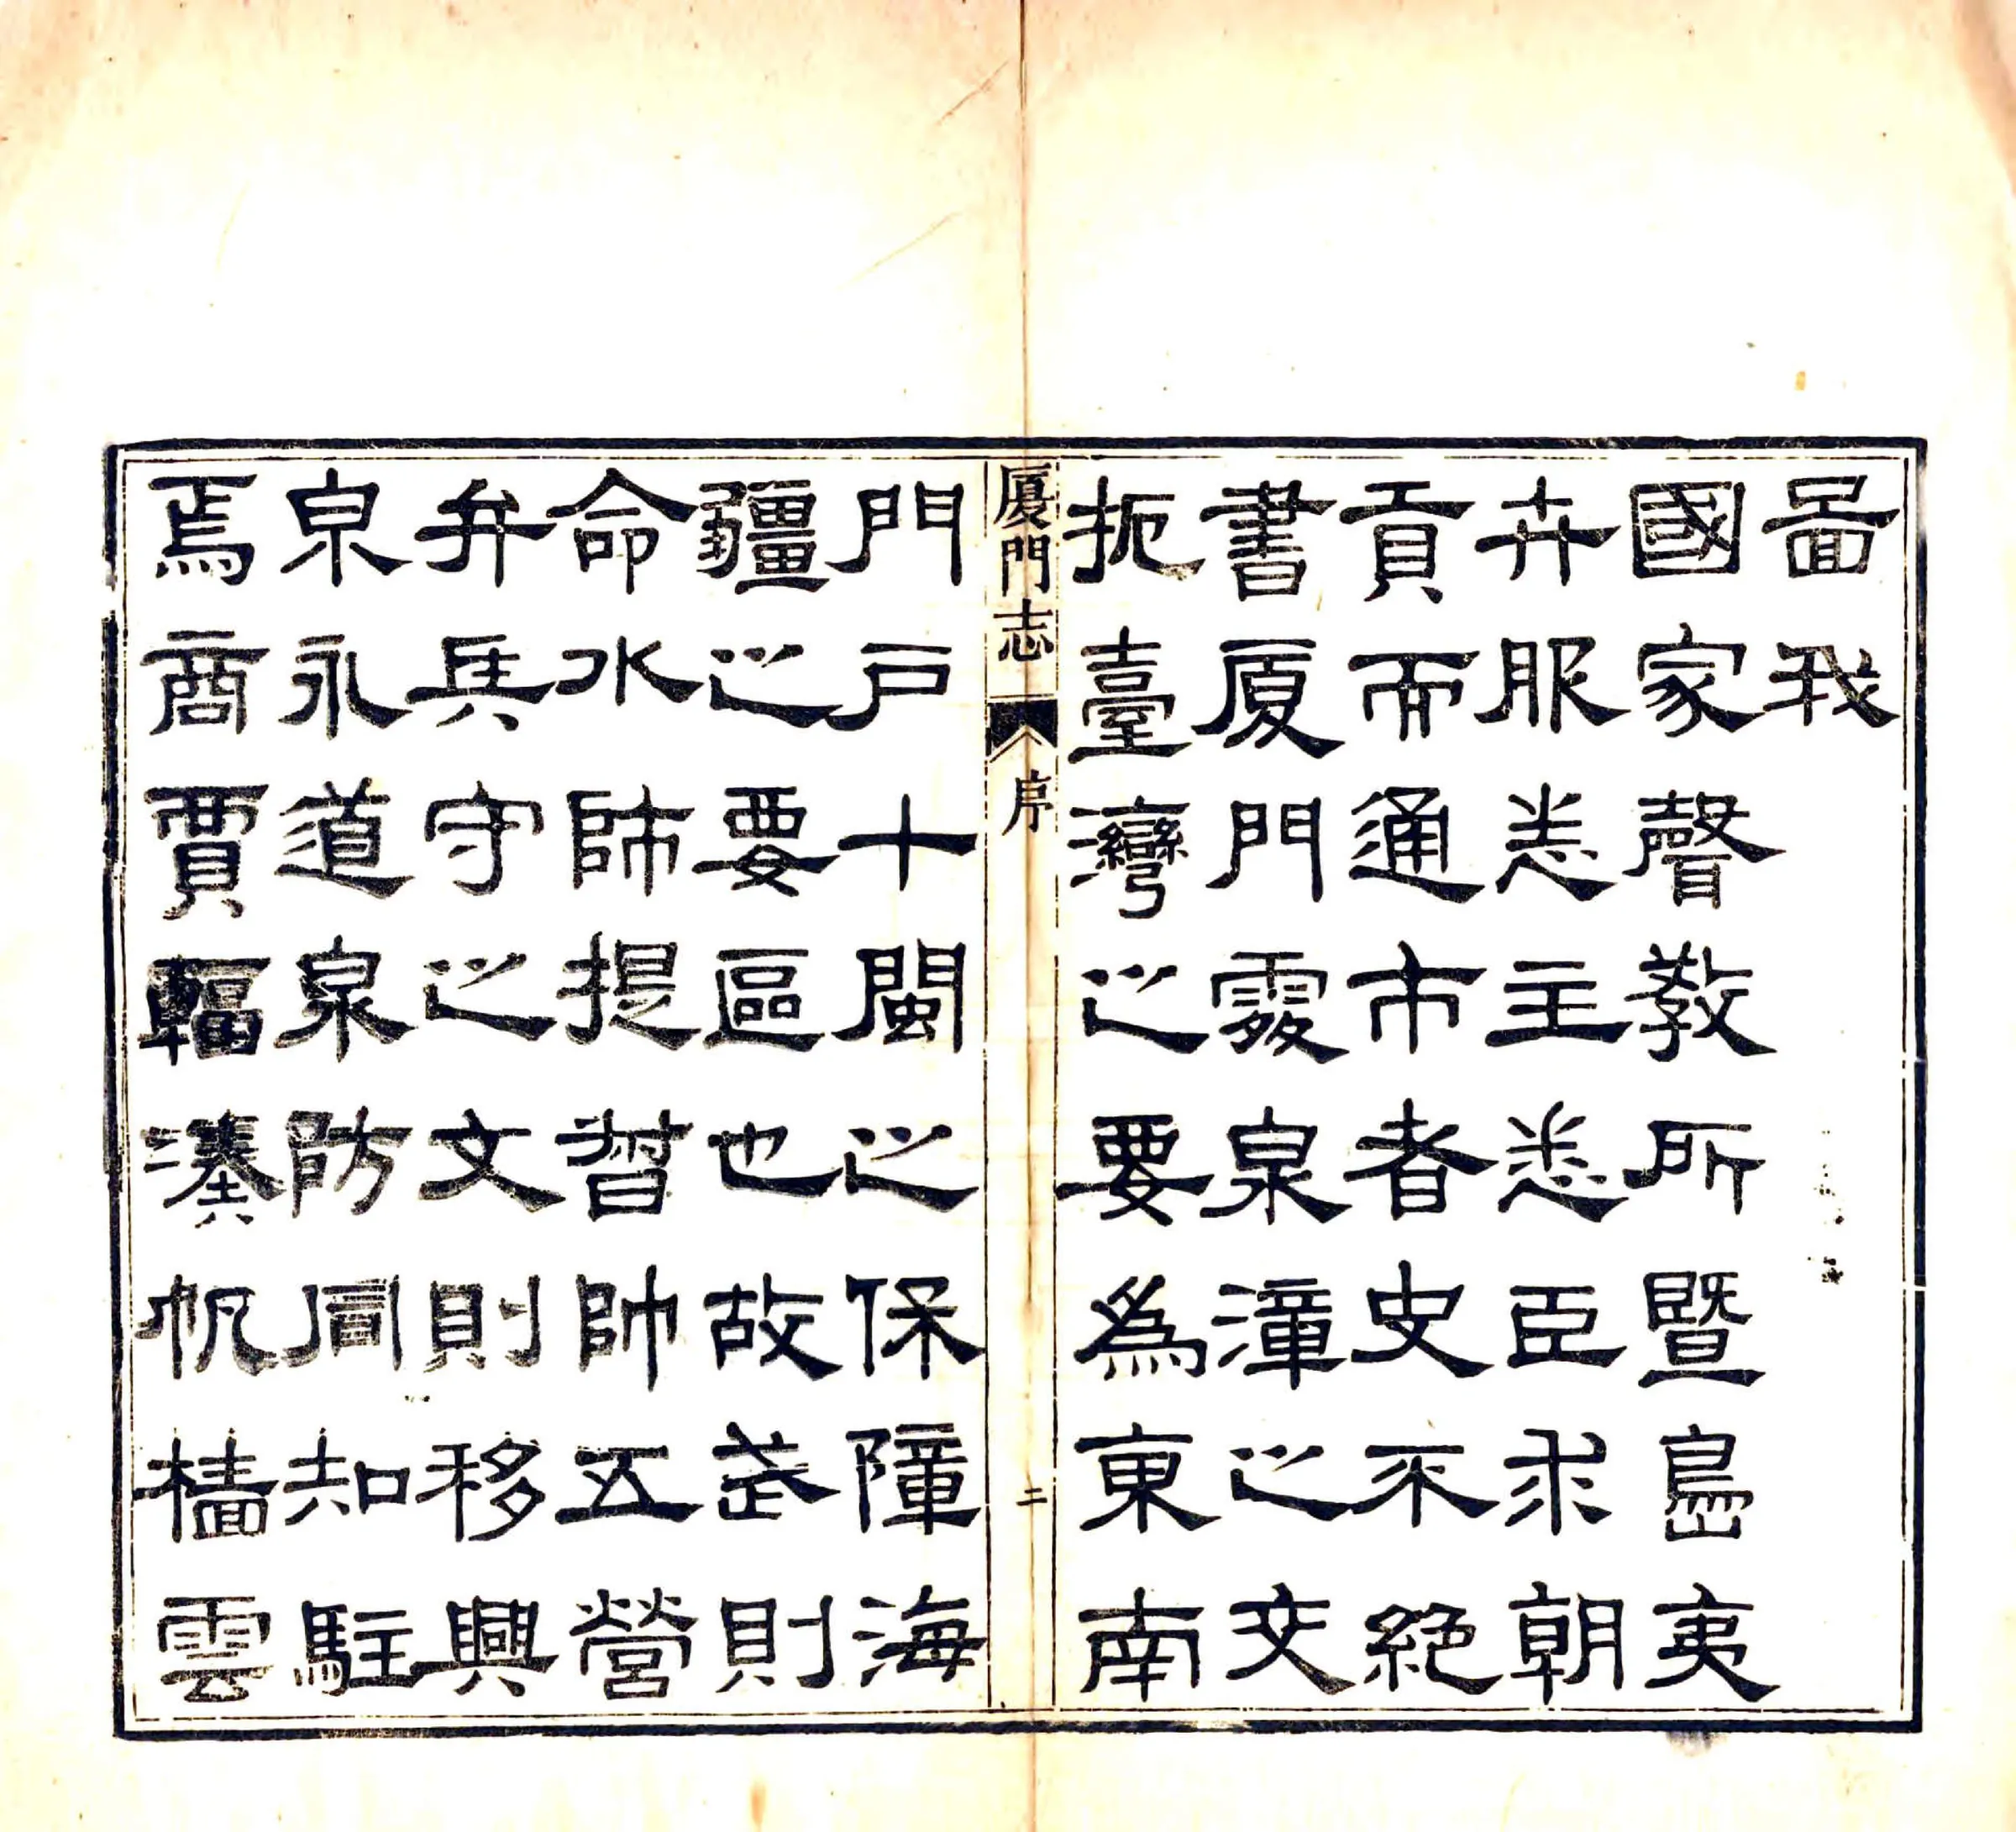 啚我
國家聲教所暨島夷
卉服悉主悉臣求朝
貢而通市者史不絕
書厦門處泉漳之交
扼臺灣之要為東南
厦門志 序 二
門戶十閩之保障海
疆之要區也故武則
命水師提督帥五營
弁兵守之文則移興
泉永道泉防同知駐
焉商賈輻湊帆檣雲